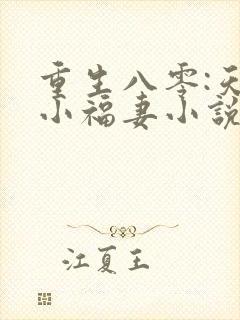 重生八零:
小福妻小說
江夏王